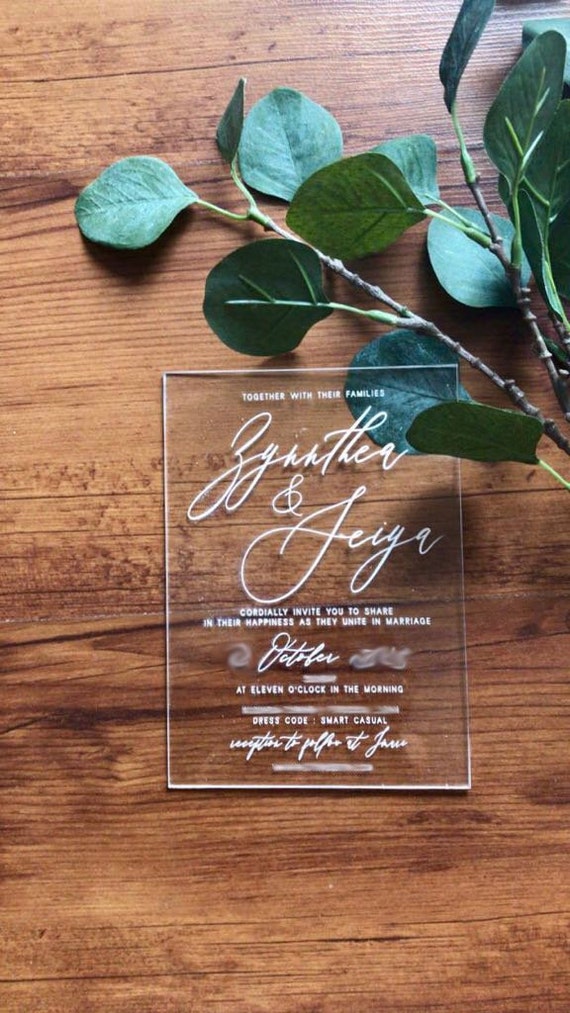 TOGETHER WITH THEIR FAMILIES
Zynnthea
&
Seiya
CORDIALLY INVITE YOU TO SHARE
IN THEIR HAPPINESS AS THEY UNITE IN MARRIAGE
October
AT ELEVEN O'CLOCK IN THE MORNING
DRESS CODE : SMART CASUAL
reception to follow at